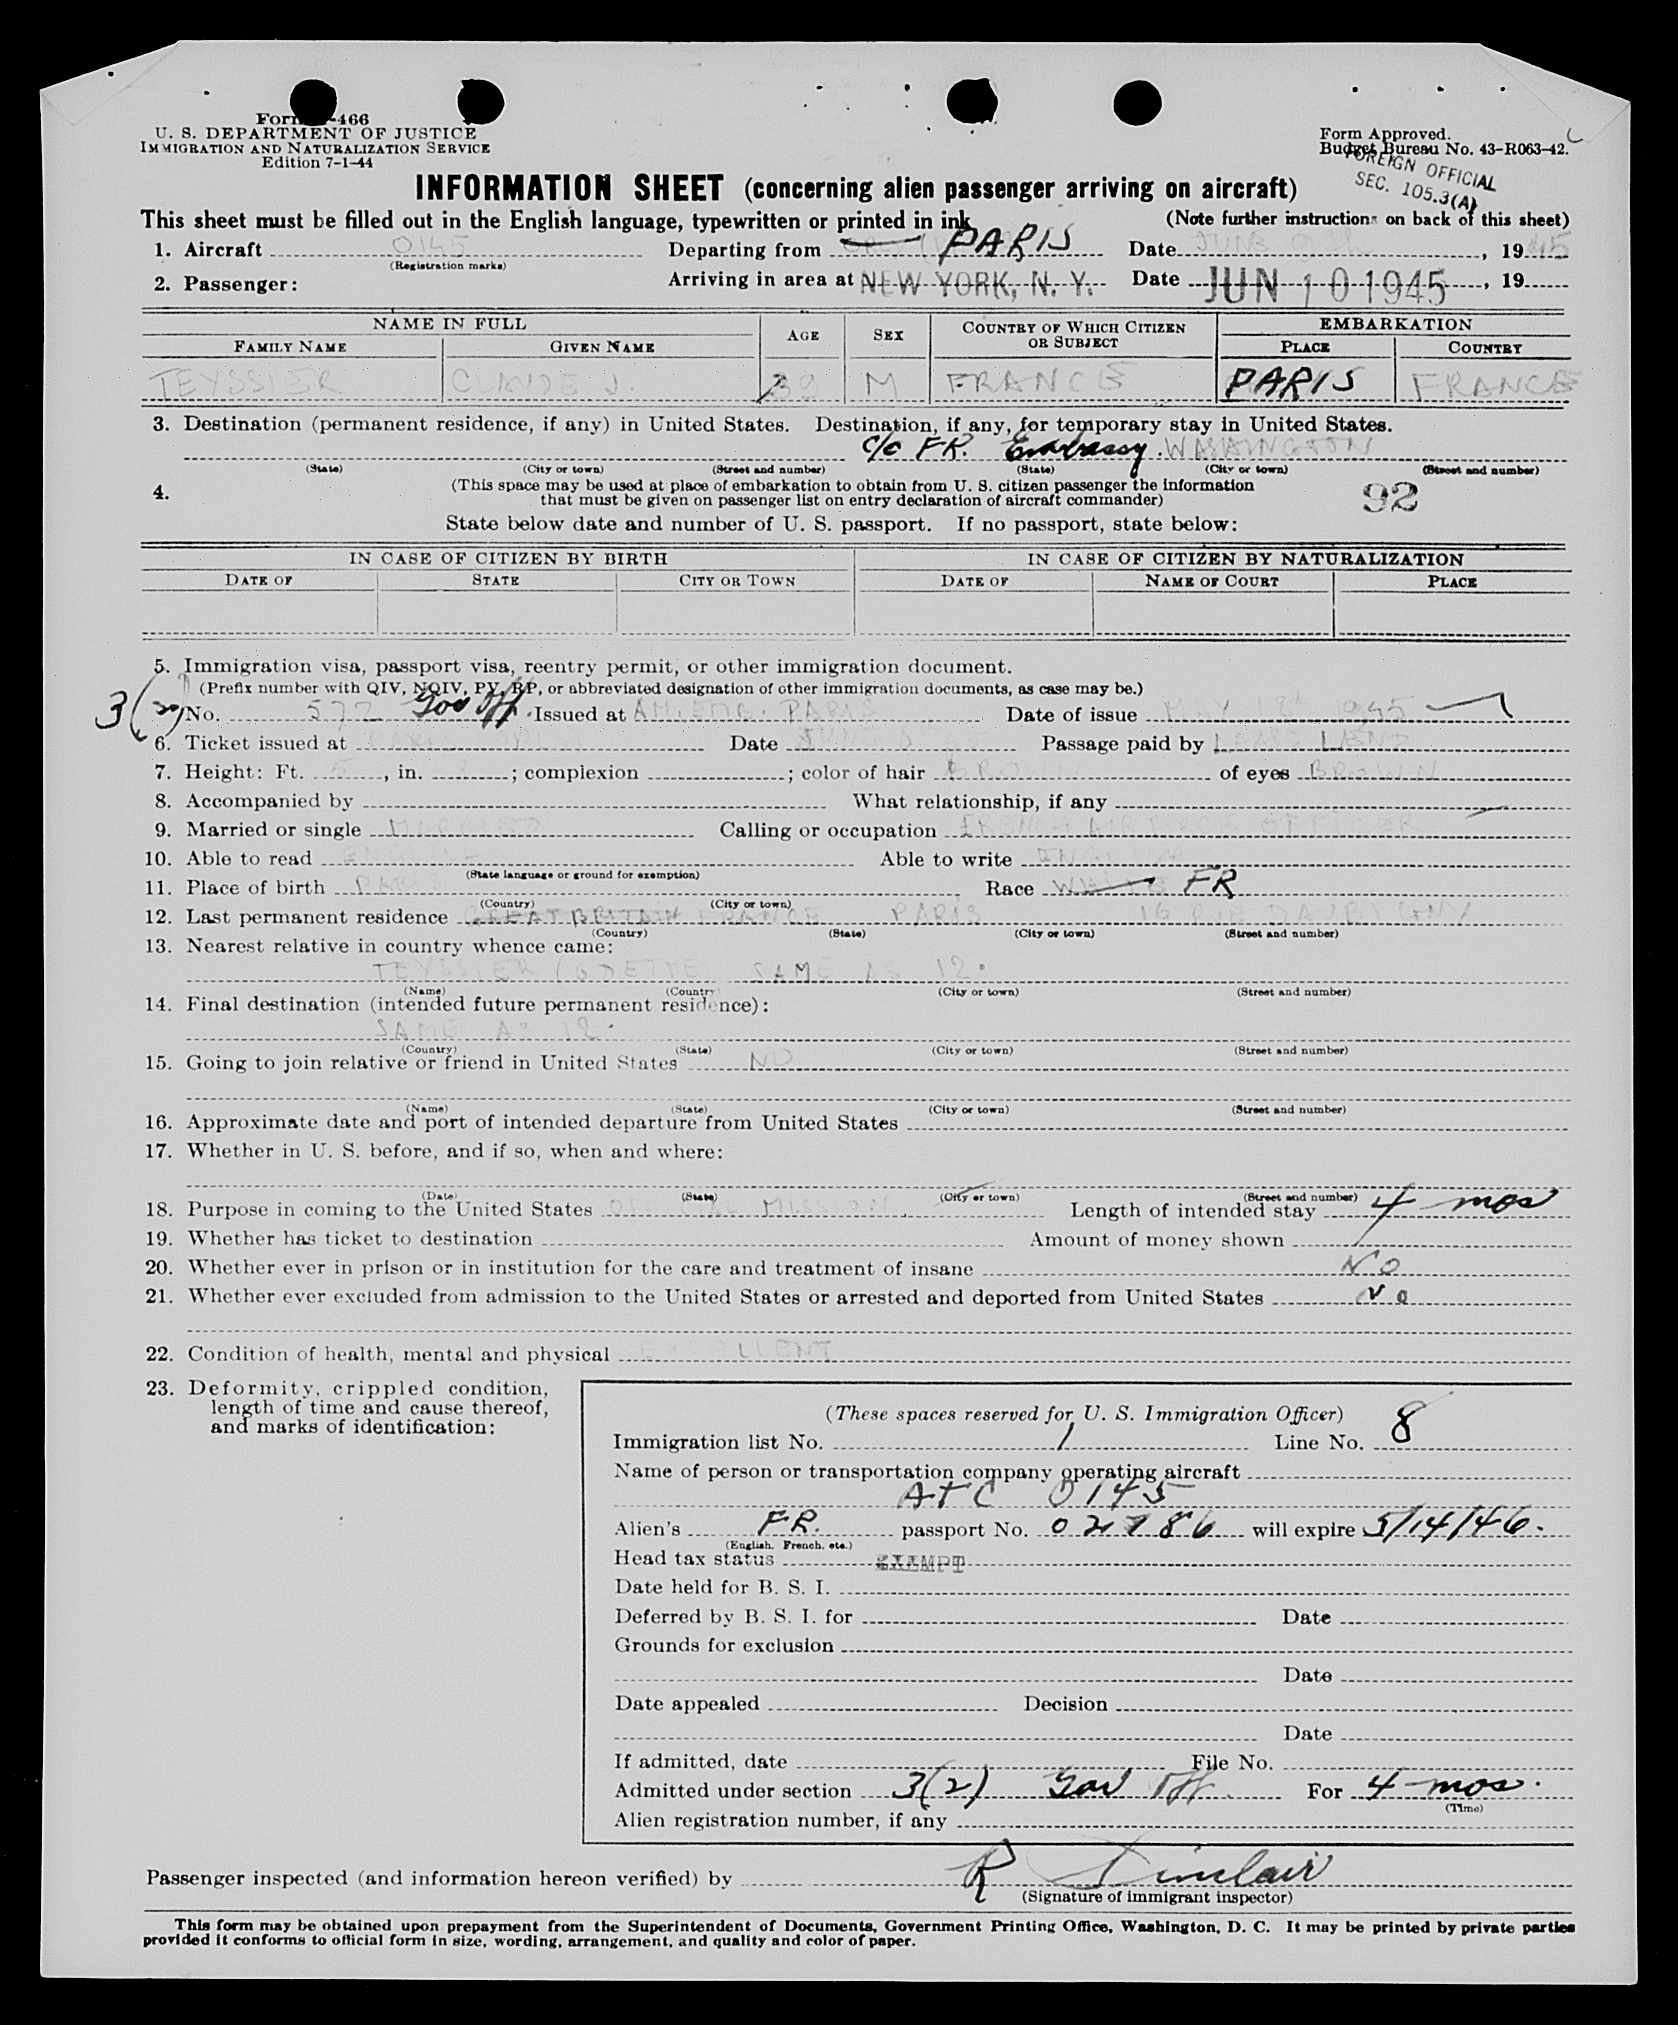 Form -466
U. S. DEPARTMENT OF JUSTICE
IMMIGRATION AND NATURALIZATION SERVICE
Edition 7-1-44
Form Approved.
Budget Bureau No. 43-R063-42.
FOREIGN OFFICIAL
SEC. 105.3(A)
INFORMATION SHEET (concerning alien passenger arriving on aircraft)
This sheet must be filled out in the English language, typewritten or printed in ink (Note further instructions on back of this sheet)
1. Aircraft 0145 Departing from PARIS Date JUNE , 1945
(Registration marks)
2. Passenger: Arriving in area at NEW YORK, N. Y. Date JUN 10 1945 , 19
NAME IN FULL AGE SEX COUNTRY OF WHICH CITIZEN OR SUBJECT EMBARKATION
FAMILY NAME GIVEN NAME PLACE COUNTRY
TEYSSIER CLAUDE J. 39 M FRANCE PARIS FRANCE
3. Destination (permanent residence, if any) in United States. Destination, if any, for temporary stay in United States.
c/o FR. Embassy. WASHINGTON
(State) (City or town) (Street and number) (State) (City or town) (Street and number)
4. (This space may be used at place of embarkation to obtain from U. S. citizen passenger the information
that must be given on passenger list on entry declaration of aircraft commander)
92
State below date and number of U. S. passport. If no passport, state below:
IN CASE OF CITIZEN BY BIRTH IN CASE OF CITIZEN BY NATURALIZATION
DATE OF STATE CITY OR TOWN DATE OF NAME OF COURT PLACE
5. Immigration visa, passport visa, reentry permit, or other immigration document.
(Prefix number with QIV, NQIV, PV, RP, or abbreviated designation of other immigration documents, as case may be.)
3(2) No. 577 Gov Off. Issued at AM. EMB. PARIS Date of issue MAY 18th 1945
6. Ticket issued at PARIS Date JUNE 8 Passage paid by LEASE LEND
7. Height: Ft. 5, in. ; complexion ; color of hair BROWN of eyes BROWN
8. Accompanied by What relationship, if any
9. Married or single MARRIED Calling or occupation FRENCH AIR FORCE OFFICER
10. Able to read ENGLISH Able to write ENGLISH
(State language or ground for exemption)
11. Place of birth PARIS Race WHITE FR
(Country) (City or town)
12. Last permanent residence GREAT BRITAIN FRANCE PARIS 16 RUE DAUBIGNY
(Country) (State) (City or town) (Street and number)
13. Nearest relative in country whence came:
TEYSSIER (ODETTE) SAME AS 12.
(Name) (Country) (City or town) (Street and number)
14. Final destination (intended future permanent residence):
SAME AS 12.
(Country) (State) (City or town) (Street and number)
15. Going to join relative or friend in United States NO
(Name) (State) (City or town) (Street and number)
16. Approximate date and port of intended departure from United States
17. Whether in U. S. before, and if so, when and where:
(Date) (State) (City or town) (Street and number)
18. Purpose in coming to the United States OFFICIAL MISSION. Length of intended stay 4 mos
19. Whether has ticket to destination Amount of money shown
20. Whether ever in prison or in institution for the care and treatment of insane NO
21. Whether ever excluded from admission to the United States or arrested and deported from United States No
22. Condition of health, mental and physical EXCELLENT
23. Deformity, crippled condition,
length of time and cause thereof,
and marks of identification:
(These spaces reserved for U. S. Immigration Officer)
Immigration list No. 1 Line No. 8
Name of person or transportation company operating aircraft
ATC 0145
Alien's FR. passport No. 02786 will expire 5/14/46.
(English, French, etc.)
Head tax status EXEMPT
Date held for B. S. I.
Deferred by B. S. I. for Date
Grounds for exclusion
Date
Date appealed Decision
Date
If admitted, date File No.
Admitted under section 3(2) Gov Off. For 4 mos.
(Time)
Alien registration number, if any
Passenger inspected (and information hereon verified) by R Sinclair
(Signature of immigrant inspector)
This form may be obtained upon prepayment from the Superintendent of Documents, Government Printing Office, Washington, D. C. It may be printed by private parties
provided it conforms to official form in size, wording, arrangement, and quality and color of paper.